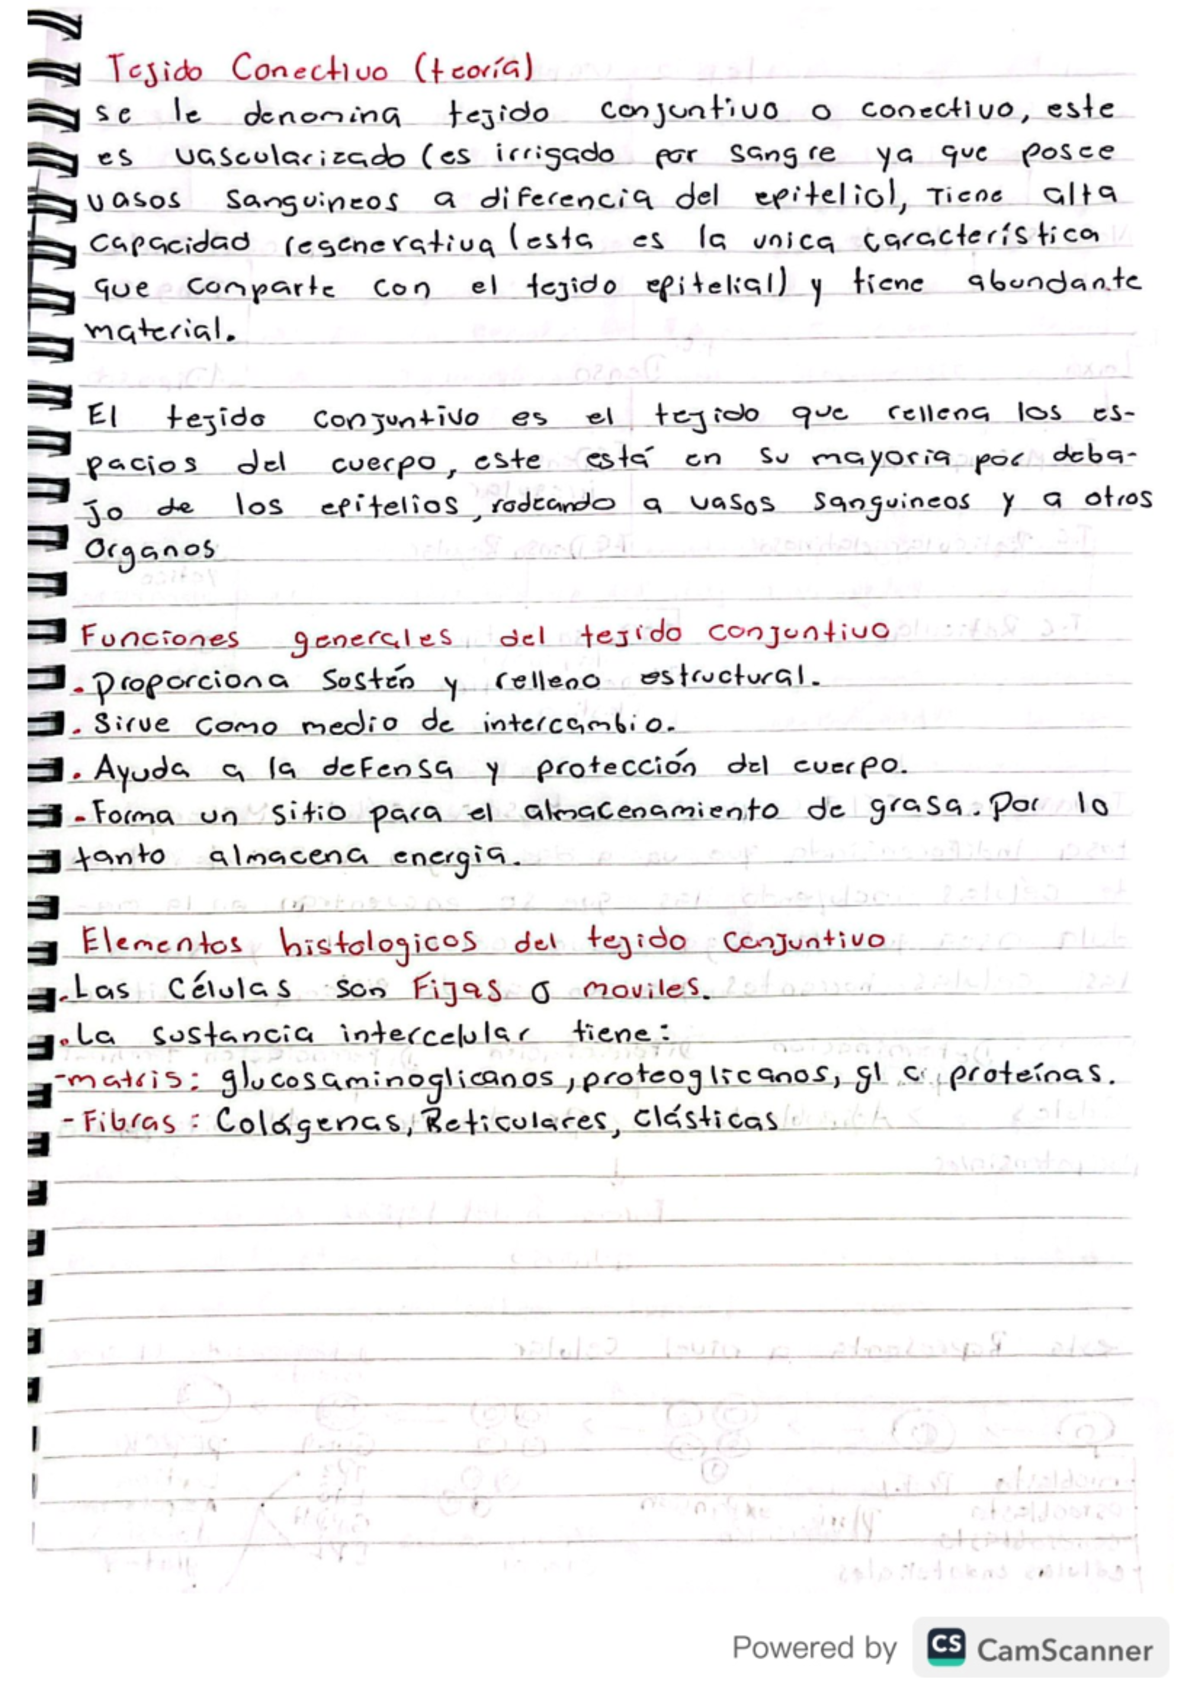 Tejido Conectivo (teoría)
se le denomina tejido conjuntivo o conectivo, este
es vascularizado (es irrigado por sangre ya que posee
vasos sanguineos a diferencia del epitelial), Tiene alta
capacidad regenerativa (esta es la unica característica
que comparte con el tejido epitelial) y tiene abundante
material.
El tejido conjuntivo es el tejido que rellena los es-
pacios del cuerpo, este está en su mayoria por deba-
jo de los epitelios, rodeando a vasos sanguineos y a otros
Organos
Funciones generales del tejido conjuntivo
. Proporciona Sostén y relleno estructural.
. Sirve como medio de intercambio.
. Ayuda a la defensa y protección del cuerpo.
. Forma un sitio para el almacenamiento de grasa. Por lo
tanto almacena energia.
Elementos histologicos del tejido conjuntivo
. Las Células son Fijas o moviles.
. La sustancia intercelular tiene:
- matris: glucosaminoglicanos, proteoglicanos, proteínas.
- Fibras: Colágenas, Reticulares, elásticas
Powered by CS CamScanner